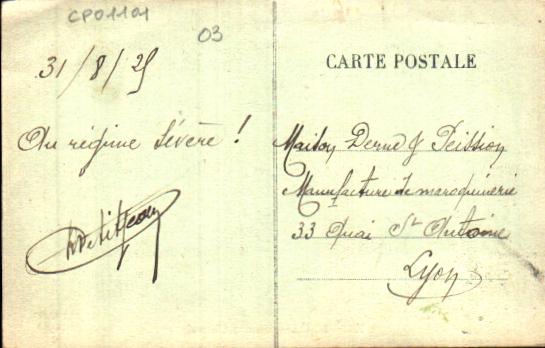 CPO1101
03
31/8/25
CARTE POSTALE
Au régime sévère !
Maison
Manufacture de maroquinerie
33 Quai St Antoine
Lyon